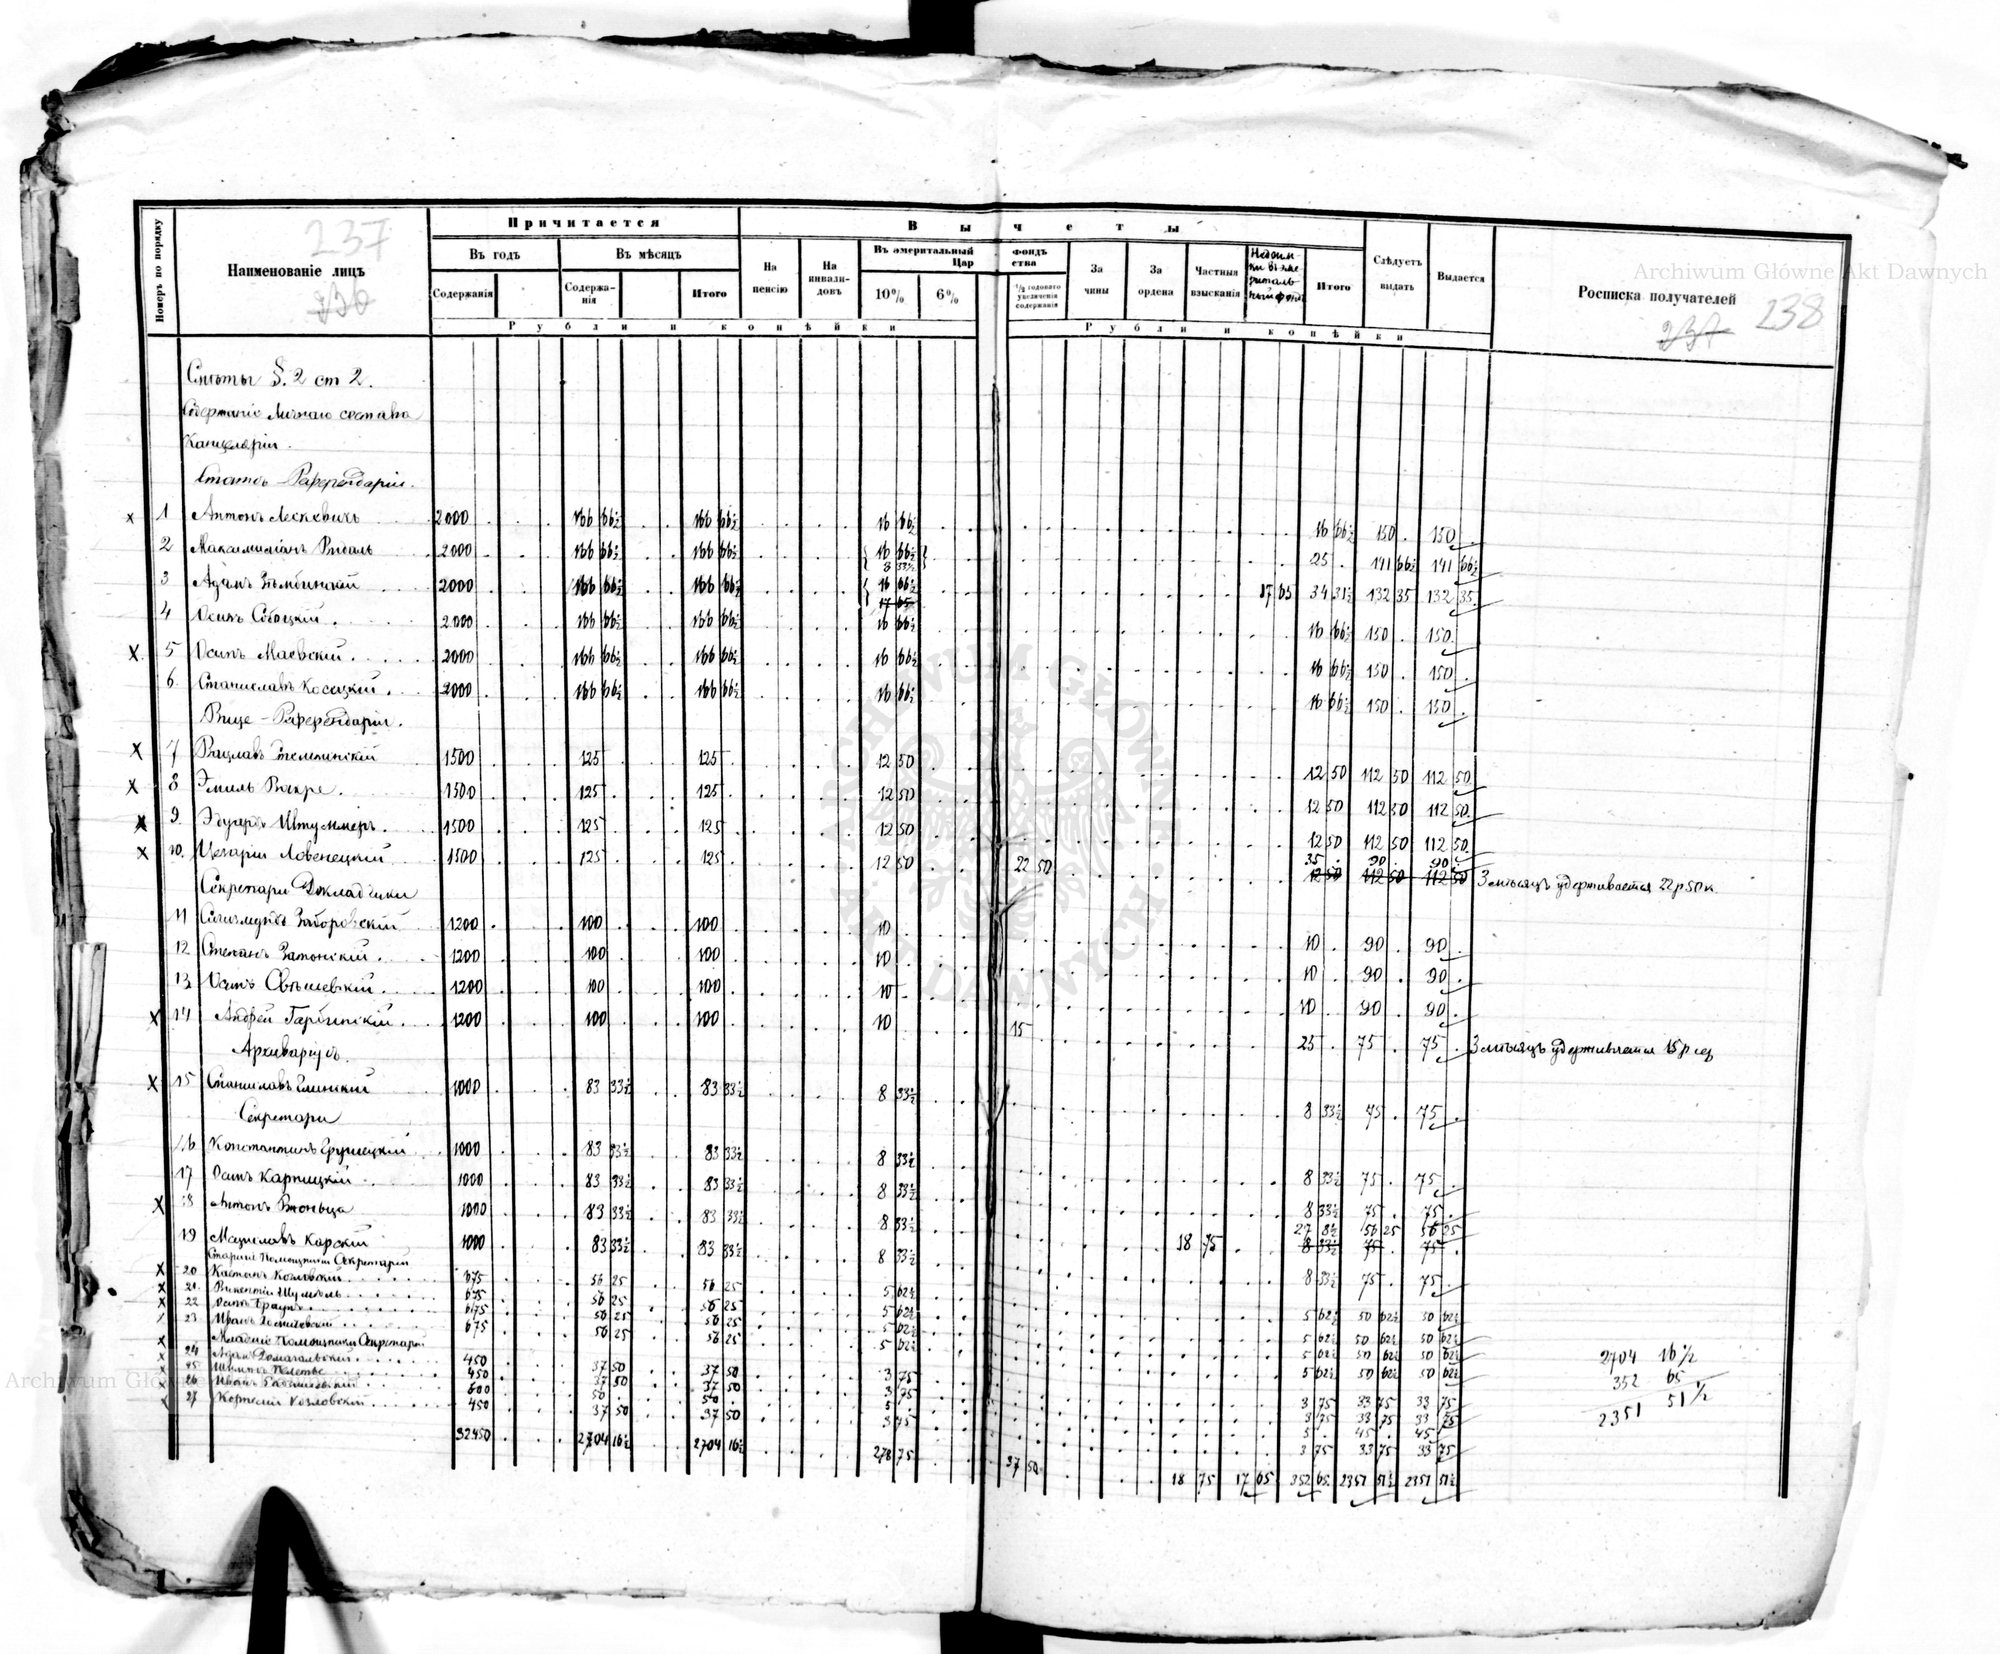 237
236
Номеръ по порядку
Наименованіе лицъ
Причитается
Въ годъ
Въ мѣсяцъ
Содержанія
Содержа-
нія
Итого
Вычеты
На
пенсію
На
инвали-
довъ
Въ эмеритальный
Цар
10%
6%
фондъ
ства
1/2 годоваго
увеличенія
содержанія
За
чины
За
ордена
Частныя
взысканія
Итого
Слѣдуетъ
выдать
Выдается
Росписка получателей
237
238
Рубли и копѣйки
Рубли и копѣйки
Archiwum Główne Akt Dawnych
Смѣты §. 2 ст 2.
Содержаніе Личнаго состава
Канцеляріи.
Статсъ-Референдаріи.
x 1 Антонъ Лескевичъ 2000 166 66½ 166 66½ 16 66½ 16 66½ 150 150
2 Максимиліанъ Видаль 2000 166 66½ 166 66½ 16 66½ 8 33½ 25 141 66½ 141 66½
3 Адамъ 2000 166 66½ 166 66½ 16 66½ 17 65 17 65 34 31½ 132 35 132 35
4 Осипъ 2000 166 66½ 166 66½ 16 66½ 16 66½ 150 150
x 5 Осипъ Маевскій 2000 166 66½ 166 66½ 16 66½ 16 66½ 150 150
6 Станиславъ Косецкій 2000 166 66½ 166 66½ 16 66½ 16 66½ 150 150
Вице-Референдаріи.
x 7 Вацлавъ 1500 125 125 12 50 12 50 112 50 112 50
x 8 Эмиль 1500 125 125 12 50 12 50 112 50 112 50
x 9 Эдуардъ Штуммеръ 1500 125 125 12 50 12 50 112 50 112 50
x 10 Цезарій Ловенецкій 1500 125 125 12 50 22 50 35 90 90
12 50 112 50 112 50 3 мѣсяцъ удерживается 22 р 50 к.
Секретари Докладчики
11 Сигизмундъ Заборовскій 1200 100 100 10 10 90 90
12 Степанъ 1200 100 100 10 10 90 90
13 Осипъ 1200 100 100 10 10 90 90
x 14 Андрей Гарбинскій 1200 100 100 10 15 25 75 75 3 мѣсяцъ удерживается 15 р
Архиваріусъ.
x 15 Станиславъ Глинскій 1000 83 33½ 83 33½ 8 33½ 8 33½ 75 75
Секретари
16 Константинъ Грушецкій 1000 83 33½ 83 33½ 8 33½ 8 33½ 75 75
17 Осипъ Карпицкій 1000 83 33½ 83 33½ 8 33½ 8 33½ 75 75
x 18 Антонъ 1000 83 33½ 83 33½ 8 33½ 18 75 27 8½ 56 25 56 25
8 33½ 75 75
19 Карскій 1000 83 33½ 83 33½ 8 33½ 8 33½ 75 75
Старшіе Помощники Секретарей
x 20 Каетанъ Козловскій 675 56 25 56 25 5 62½ 5 62½ 50 62½ 50 62½
x 21 Викентій 675 56 25 56 25 5 62½ 5 62½ 50 62½ 50 62½
x 22 Осипъ Браунъ 675 56 25 56 25 5 62½ 5 62½ 50 62½ 50 62½
23 Иванъ 675 56 25 56 25 5 62½ 5 62½ 50 62½ 50 62½
Младшіе Помощники Секретарей
x 24 Адамъ Домагальскій 450 37 50 37 50 3 75 3 75 33 75 33 75
x 25 450 37 50 37 50 3 75 3 75 33 75 33 75
x 26 Иванъ 600 50 50 5 5 45 45
x 27 Корнелій Козловскій 450 37 50 37 50 3 75 3 75 33 75 33 75
32450 2704 16½ 2704 16½ 278 75 37 50 18 75 17 65 352 65 2351 51½ 2351 51½
2704 16 1/2
352 65
2351 51 1/2
Archiwum Główne Akt Dawnych
ARCHIWUM GŁÓWNE AKT DAWNYCH